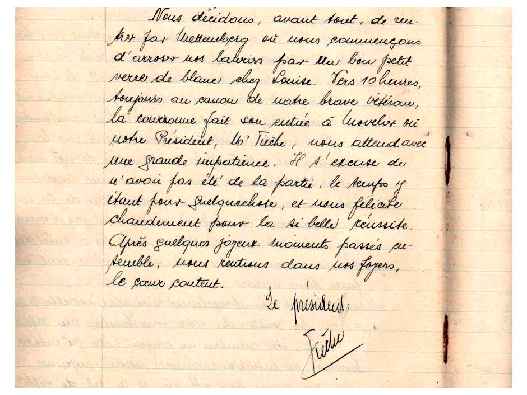 Nous décidons, avant tout, de ren-
trer par Mettemberg où nous commençons
d'arroser nos lauriers par un bon petit
verre de blanc chez Louise. Vers 10 heures,
toujours au canon de notre brave vétéran,
la couronne fait son entrée à Movelier où
notre Président, Mr Fréche, nous attend avec
une grande impatience. Il s'excuse de
n'avoir pas été de la partie, le temps y
étant pour quelquechose, et nous félicite
chaudement pour la si belle réussite.
Après quelques joyeux moments passés en-
semble, nous rentrons dans nos foyers,
le cœur content.
Le président:
Frêche